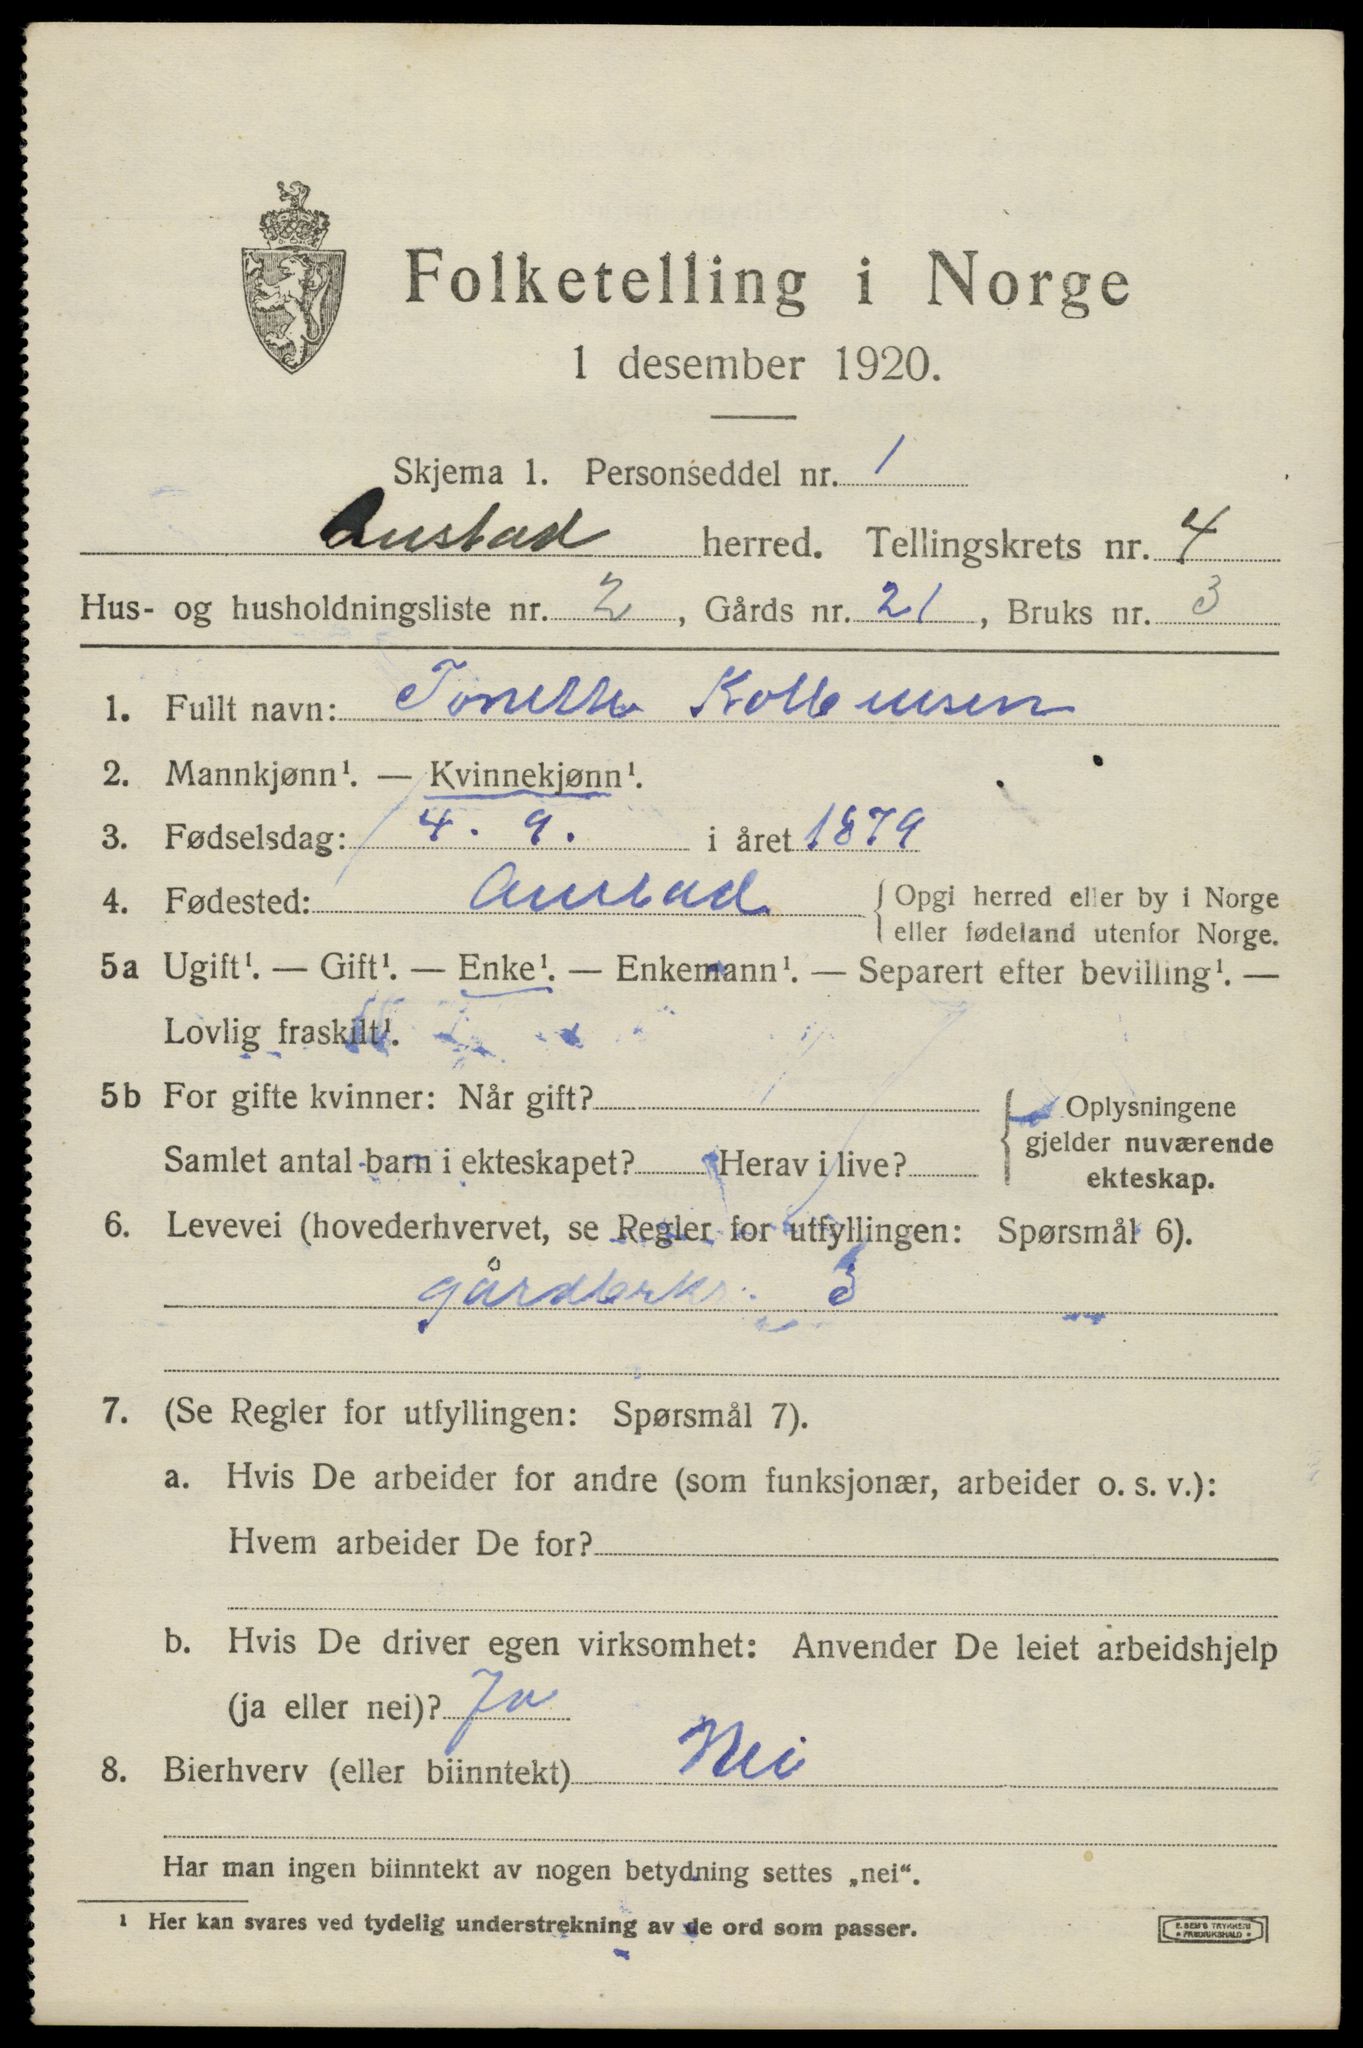 Folketelling i Norge
1 desember 1920.
Skjema 1. Personseddel nr. 1
Austad herred. Tellingskrets nr. 4
Hus- og husholdningsliste nr. 2, Gårds nr. 21, Bruks nr. 3
1. Fullt navn: Tonette
2. Mannkjønn¹. — Kvinnekjønn¹.
3. Fødselsdag: 4. 9. i året 1879
4. Fødested: Austad { Opgi herred eller by i Norge
eller fødeland utenfor Norge.
5a Ugift¹. — Gift¹. — Enke¹. — Enkemann¹. — Separert efter bevilling¹. —
Lovlig fraskilt¹.
5b For gifte kvinner: Når gift? { Oplysningene
gjelder nuværende
Samlet antal barn i ekteskapet? Herav i live?
ekteskap.
6. Levevei (hovederhvervet, se Regler for utfyllingen: Spørsmål 6).
3
7. (Se Regler for utfyllingen: Spørsmål 7).
a. Hvis De arbeider for andre (som funksjonær, arbeider o. s. v.):
Hvem arbeider De for?
b. Hvis De driver egen virksomhet: Anvender De leiet arbeidshjelp
(ja eller nei)? Ja
8. Bierhverv (eller biinntekt) Nei
Har man ingen biinntekt av nogen betydning settes „nei“.
¹ Her kan svares ved tydelig understrekning av de ord som passer.
E. SEM'S TRYKKERI
* FREDRIKSHALD *